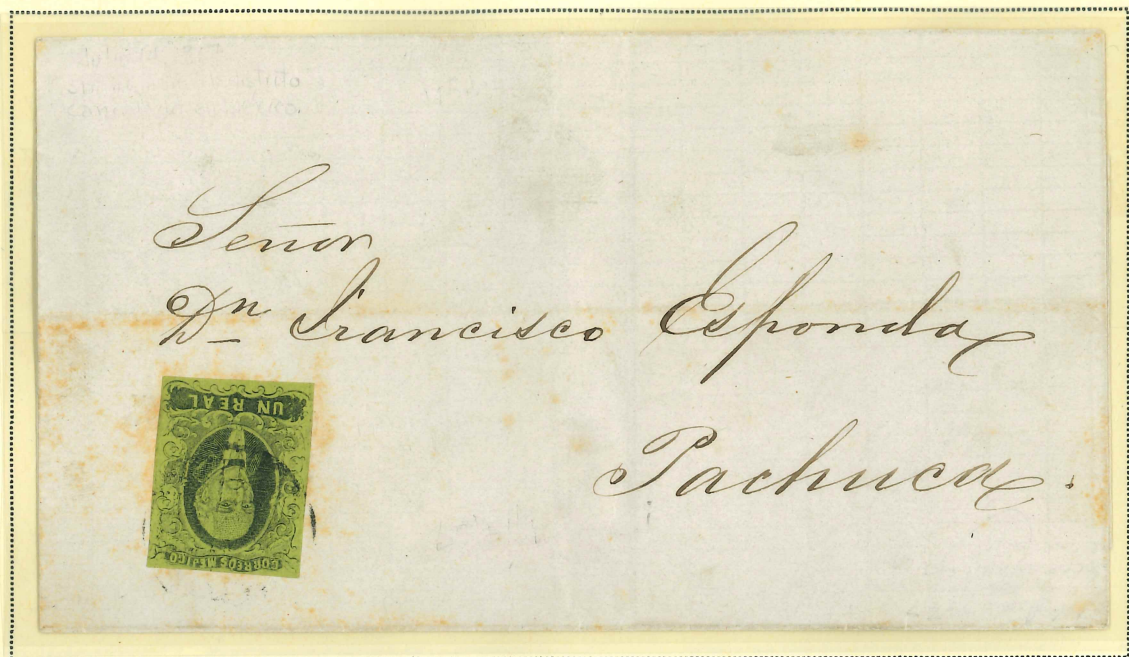 Señor
Dn Francisco Esponda
Pachuca.
UN REAL
CORREOS MEJICO